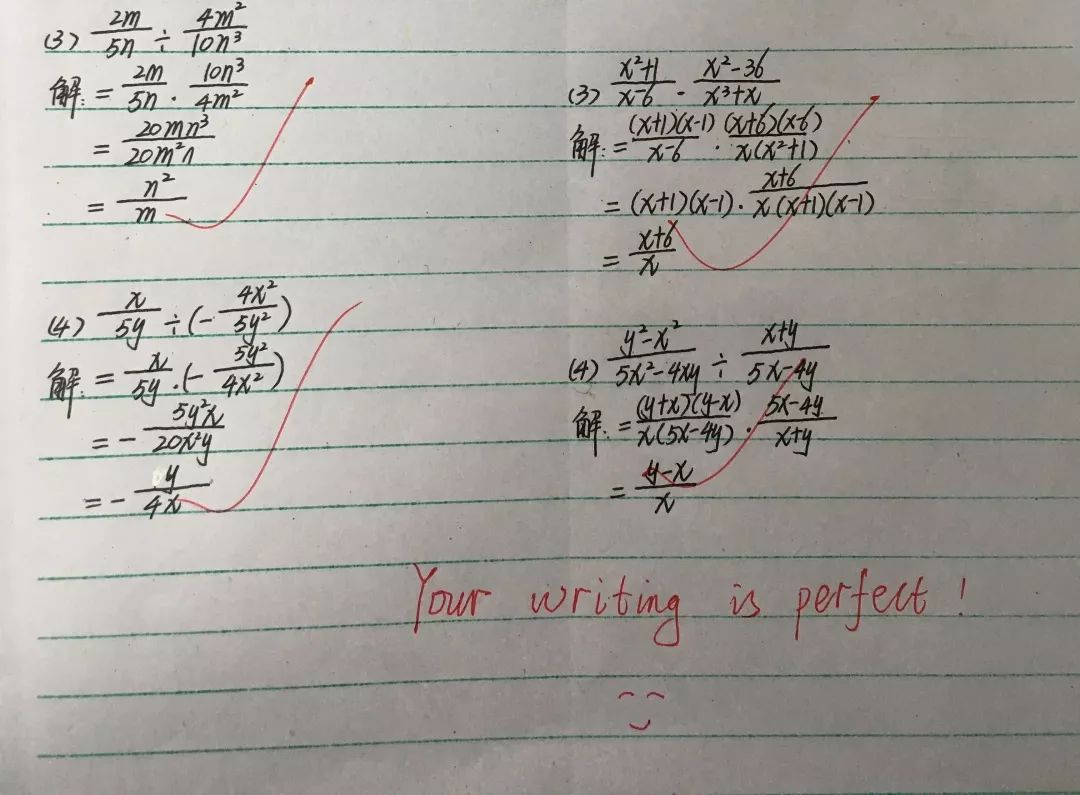 (3) \frac{2m}{5n} ÷ \frac{4m²}{10n³}
解: = \frac{2m}{5n} · \frac{10n³}{4m²}
= \frac{20mn³}{20m²n}
= \frac{n²}{m}
(4) \frac{x}{5y} ÷ (-\frac{4x²}{5y²})
解: = \frac{x}{5y} · (-\frac{5y²}{4x²})
= -\frac{5y²x}{20x²y}
= -\frac{y}{4x}
(3) \frac{x²+1}{x-6} · \frac{x²-36}{x³+x}
解: = \frac{(x+1)(x-1)}{x-6} · \frac{(x+6)(x-6)}{x(x²+1)}
= (x+1)(x-1) · \frac{x+6}{x(x+1)(x-1)}
= \frac{x+6}{x}
(4) \frac{y²-x²}{5x²-4xy} ÷ \frac{x+y}{5x-4y}
解: = \frac{(y+x)(y-x)}{x(5x-4y)} · \frac{5x-4y}{x+y}
= \frac{y-x}{x}
Your writing is perfect!